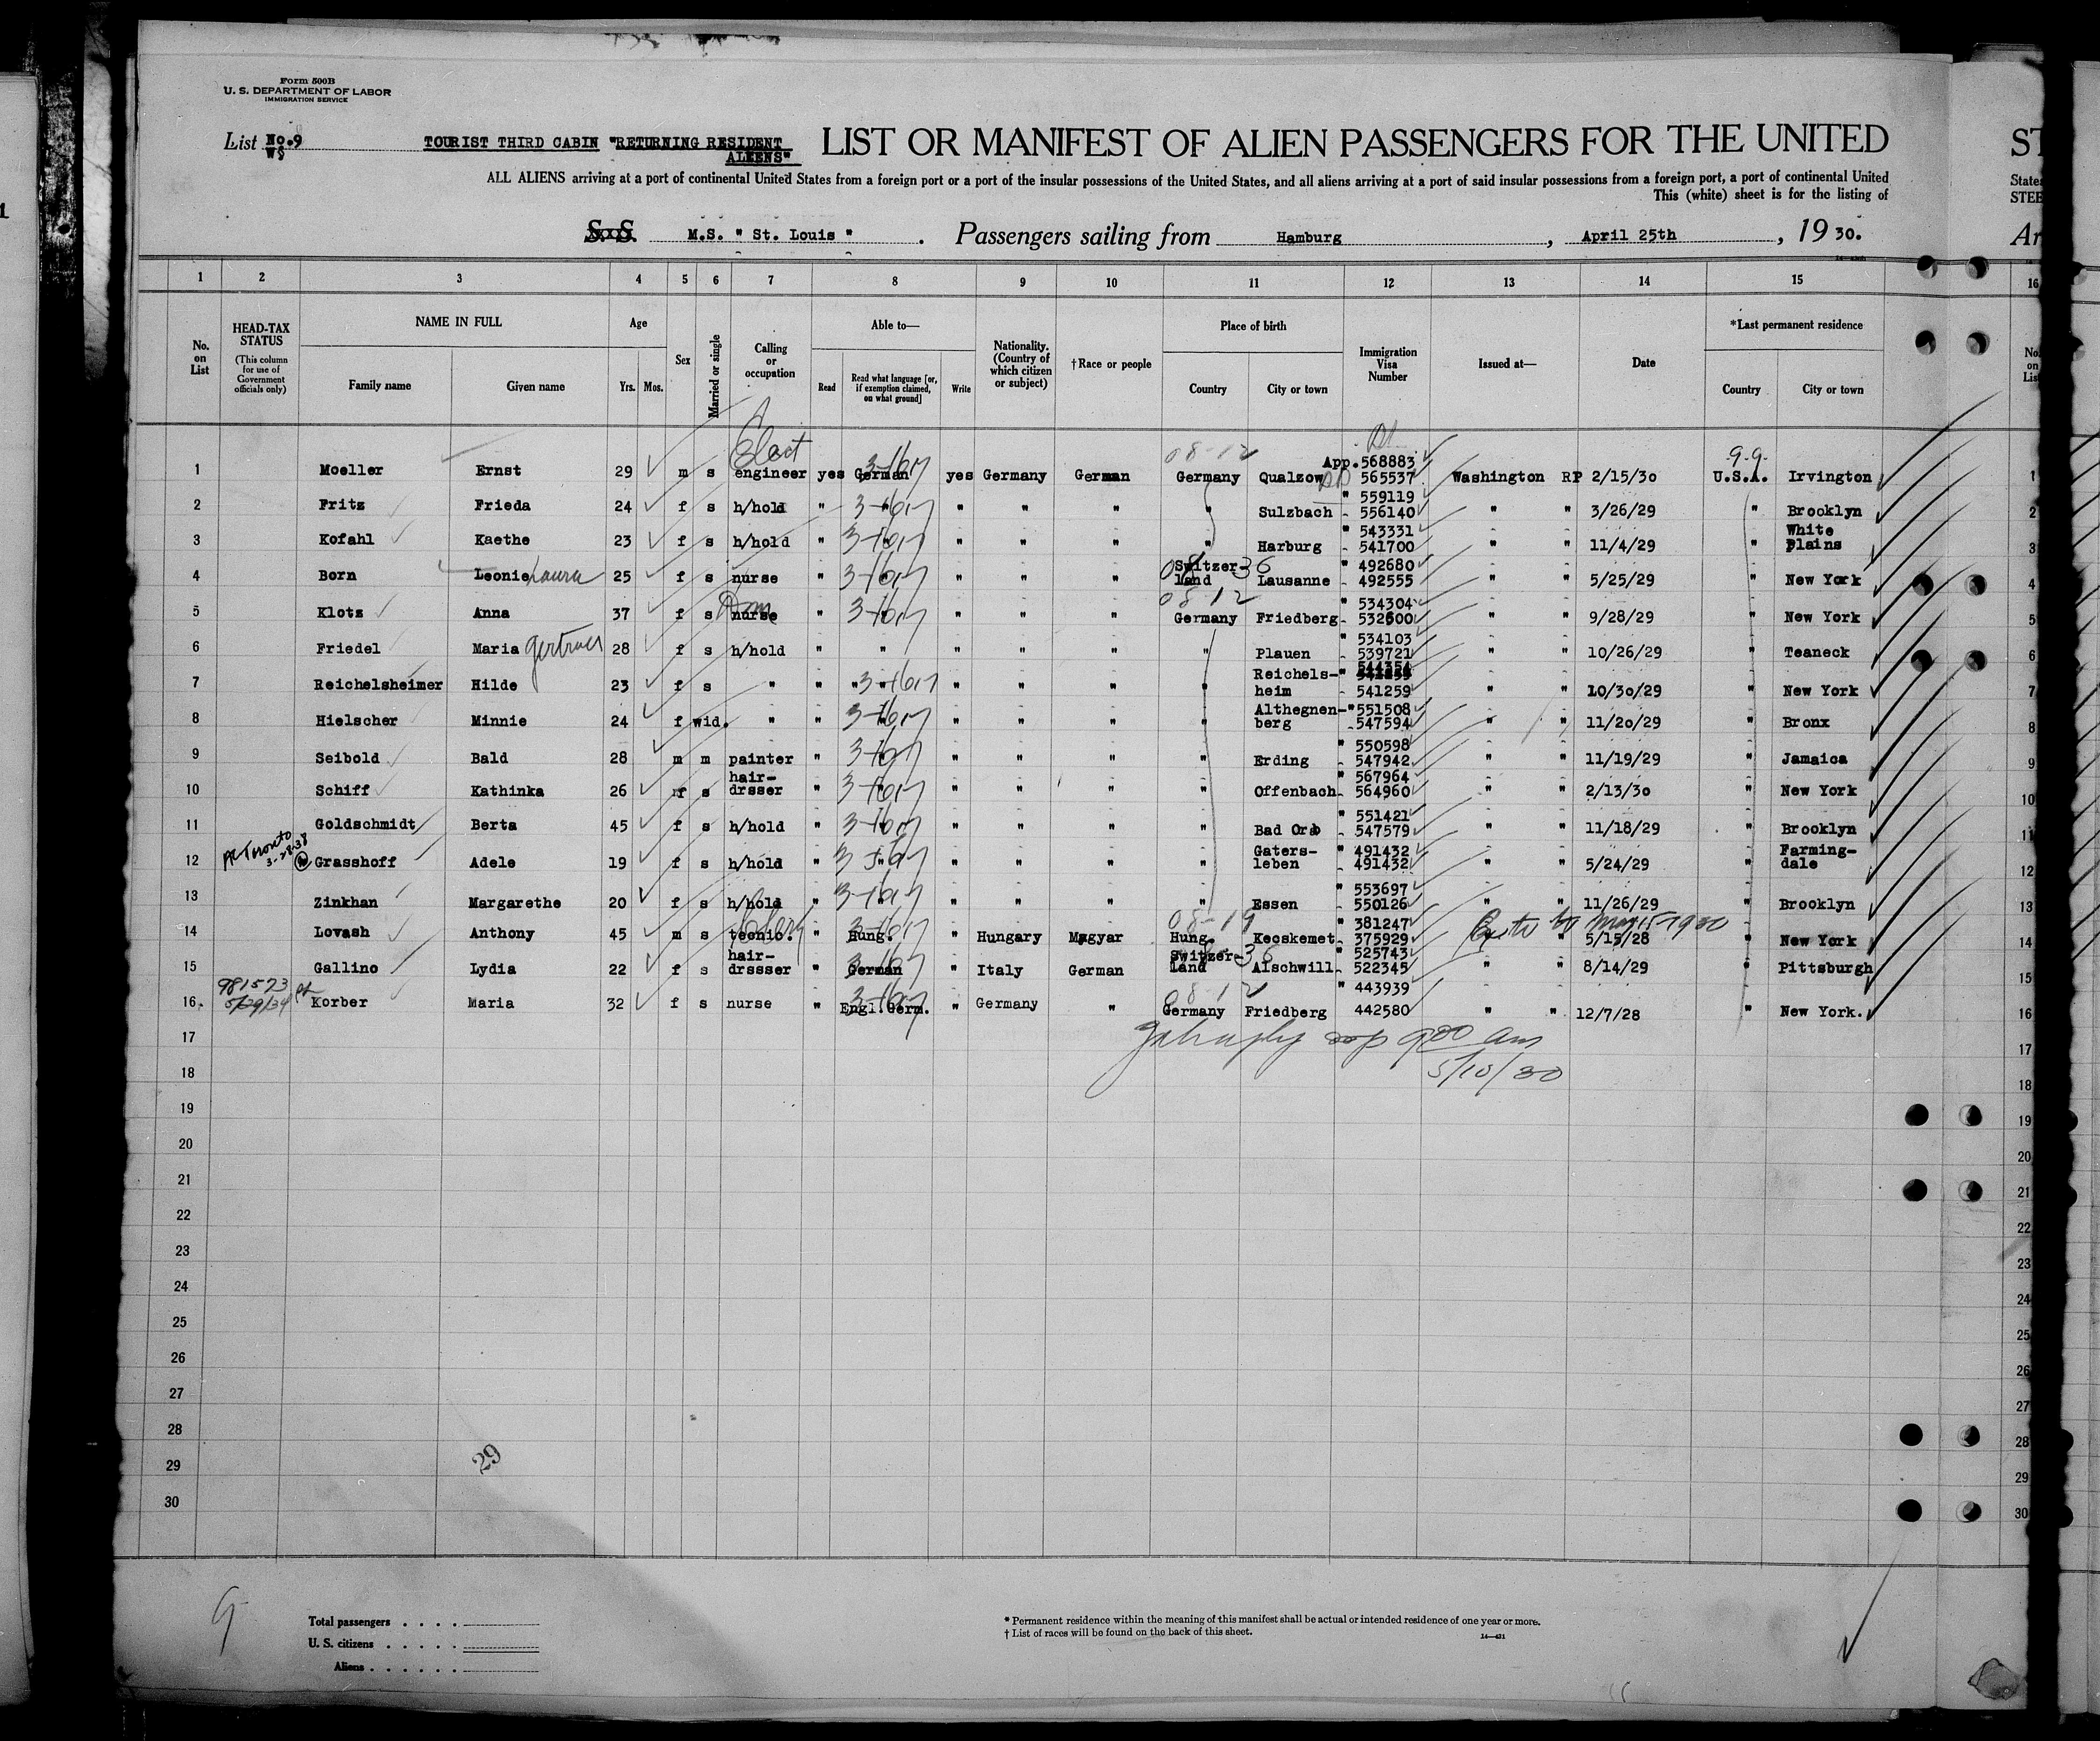 Form 500B
U. S. DEPARTMENT OF LABOR
IMMIGRATION SERVICE
List No.9
WS
TOURIST THIRD CABIN "RETURNING RESIDENT
ALIENS"
LIST OR MANIFEST OF ALIEN PASSENGERS FOR THE UNITED
ALL ALIENS arriving at a port of continental United States from a foreign port or a port of the insular possessions of the United States, and all aliens arriving at a port of said insular possessions from a foreign port, a port of continental United
This (white) sheet is for the listing of
S. S. M.S. " St. Louis " . Passengers sailing from Hamburg , April 25th , 19 30.
1 2 3 4 5 6 7 8 9 10 11 12 13 14 15
No. on List
HEAD-TAX STATUS (This column for use of Government officials only)
NAME IN FULL
Family name Given name
Age
Yrs. Mos.
Sex
Married or single
Calling or occupation
Able to—
Read
Read what language [or, if exemption claimed, on what ground]
Write
Nationality. (Country of which citizen or subject)
†Race or people
Place of birth
Country City or town
Immigration Visa Number
Issued at—
Date
*Last permanent residence
Country City or town
Elect
08-12
9-9-
1 Moeller Ernst 29 m s engineer yes German yes Germany German Germany Qualzow App.568883 565537 Washington RP 2/15/30 U.S.A. Irvington 1
2 Fritz Frieda 24 f s h/hold " " " " " " Sulzbach " 559119 556140 " " 3/26/29 " Brooklyn 2
3 Kofahl Kaethe 23 f s h/hold " " " " " " Harburg " 543331 541700 " " 11/4/29 " White Plains 3
4 Born Leonie Laura 25 f s nurse " " " " " Switzer-land 36 Lausanne " 492680 492555 " " 5/25/29 " New York 4
08 12
5 Klotz Anna 37 f s nurse Dom " " " " " Germany Friedberg " 534304 532600 " " 9/28/29 " New York 5
6 Friedel Maria 28 f s h/hold " " " " " " Plauen " 534103 539721 " " 10/26/29 " Teaneck 6
7 Reichelsheimer Hilde 23 f s " " " " " " " Reichels-heim " 541259 " " 10/30/29 " New York 7
8 Hielscher Minnie 24 f wid. " " " " " " " Althegnen-berg "551508 547594 " " 11/20/29 " Bronx 8
9 Seibold Bald 28 m m painter " " " " " " Erding " 550598 547942 " " 11/19/29 " Jamaica 9
10 Schiff Kathinka 26 f s hair-drsser " " " " " " Offenbach " 567964 564960 " " 2/13/30 " New York 10
11 Goldschmidt Berta 45 f s h/hold " " " " " " Bad Orb " 551421 547579 " " 11/18/29 " Brooklyn 11
Toronto 3-28-38
12 Grasshoff Adele 19 f s h/hold " " " " " " Gaters-leben " 491432 491432 " " 5/24/29 " Farming-dale 12
13 Zinkhan Margarethe 20 f s h/hold " " " " " " Essen " 553697 550126 " " 11/26/29 " Brooklyn 13
08-19
14 Lovash Anthony 45 m s tecnic. " Hung. " Hungary Magyar Hung. Kecskemet " 381247 375929 to May 15-1930 " 5/15/28 " New York 14
15 Gallino Lydia 22 f s hair-drssser " German " Italy German Switzer-land 36 Alschwill " 525743 522345 " " 8/14/29 " Pittsburgh 15
981573
5/29/34
08-12
16. Korber Maria 32 f s nurse " Engl.Germ. " Germany " Germany Friedberg " 443939 442580 " " 12/7/28 " New York. 16
17 900 am 17
18 5/10/30 18
19 19
20 20
21 21
22 22
23 23
24 24
25 25
26 26
27 27
28 28
29 29
30 30
29
9
Total passengers . . . .
U. S. citizens . . . . .
Aliens . . . . . .
* Permanent residence within the meaning of this manifest shall be actual or intended residence of one year or more.
† List of races will be found on the back of this sheet.
ST
States
STEE
Ar
16
No. on List